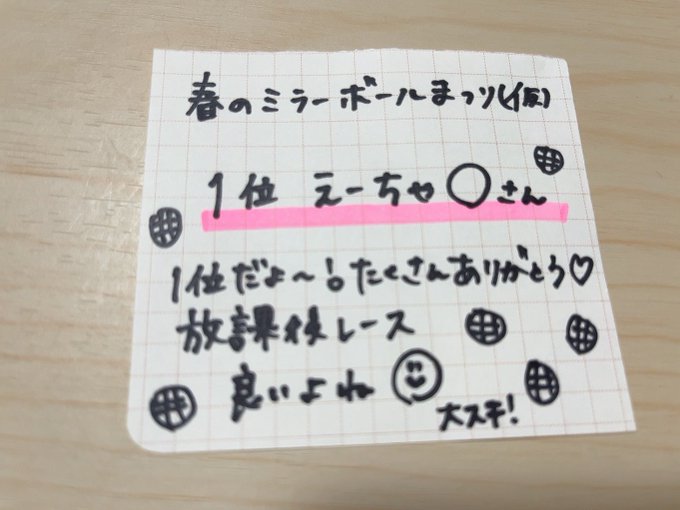 春のミラーボールまつり(仮)
1位 えーちゃ○さん
1位だよ〜!たくさんありがとう♡
放課後レース
良いよね
大スキ!